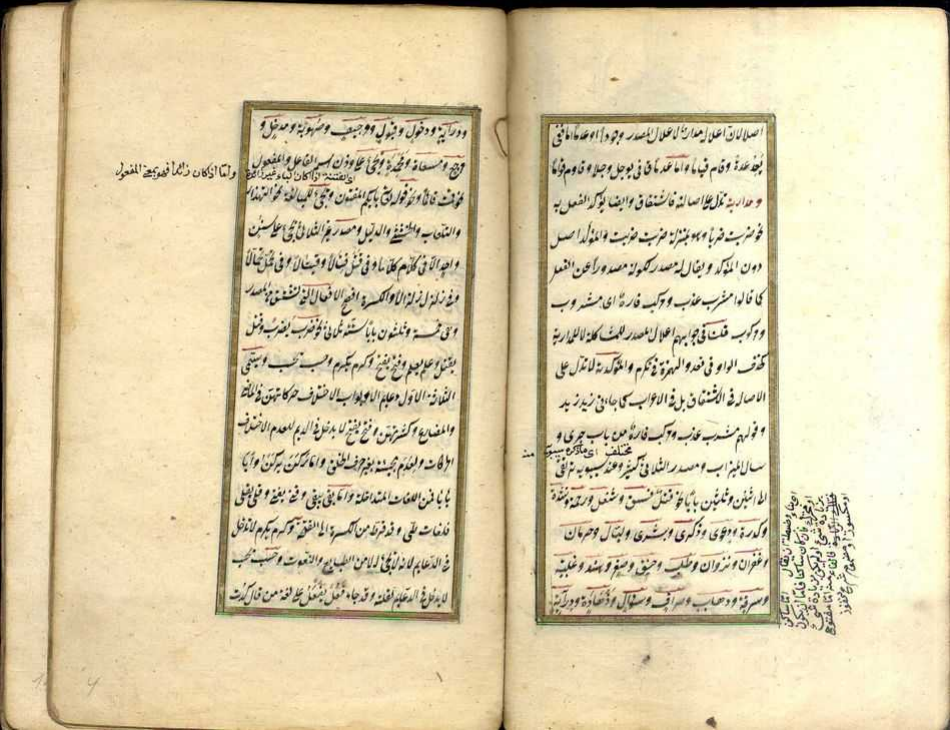 اصلا لان اعلال مدارية لاعلال المصدر وجودا او عدما اما في
يعد عدة وقام قياما واما عدما في يوجل وجلا وقاوم قواما
ومداريته تدل على اصالته في الاشتقاق وايضا يؤكد الفعل به
نحو ضربت ضربا وهو بمنزلة ضربت ضربت والمؤكد اصل
دون المؤكد ويقال له مصدر لكونه مصدورا عن الفعل
كما قالوا مشرب عذب ومركب فاره اى مشروب
ومركوب قلنا في جوابهم اعلال المصدر للمشاكلة لا للمدارية
كحذف الواو في تعد والهمزة في تكرم والمؤكدية لا تدل على
الاصالة في الاشتقاق بل في الاعراب كما جاءنى زيد زيد
وقولهم مشرب عذب ومركب فاره من باب جرى و
مختلف اى ما ذكره سيبويه منه
سال الميزاب ومصدر الثلاثى كثير وعند سيبويه يرتقى
الى اثنين وثلثين بابا نحو قتل وفسق وشغل ورحمة ونشدة
وكدرة ودعوى وذكرى وبشرى وليان وحرمان
وغفران ونزوان وطلب وخنق وصغر وهدى وغلبة
وسرقة وذهاب وصراف وسؤال وزهادة ودراية
ودراية ودخول وقبول ووجيف وصهوبة ومدخل و
مرجع ومسعاة ومحمدة ويجئ على وزن اسم الفاعل والمفعول
اى الفتنة اذا كان الباء غير زائدة واما اذ كان زائدا فهو بمعنى المفعول
نحو قمت قائما ونحو قوله تعالى بأيكم المفتون ويجئ للمبالغة نحو التهذار
والتلعاب والحثيثى والدليلى ومصدر غير الثلاثى يجئ على سنن
واحد الا في كلم كلاما وفي قتل قتالا وقيتالا وفي تحمل تحمالا
وفي زلزل زلزالا والكسرة افصح الافعال التى تشتق من المصدر
وهى خمسة وثلثون بابا ستة للثلاثى نحو ضرب يضرب وقتل
يقتل وعلم يعلم وفتح يفتح وكرم يكرم وحسب يحسب ويسمى
الثلاثة الاول دعايم الابواب لاختلاف حركاتهن في الماضى
والمضارع وكثرتهن وفتح يفتح لا يدخل في الدعايم لعدم اختلاف
الحركات ولعدم مجيئه بغير حرف الحلق واما ركن يركن وابى
يابى فمن اللغات المتداخلة واما بقى يبقى وفنى يفنى وقلى يقلى
فلغات طى وقد فروا من الكسرة الى الفتحة وكرم يكرم لا يدخل
في الدعايم لانه لا يجئ الا من الطبايع والنعوت وحسب يحسب
لا يدخل في الدعايم لقلته وقد جاء فعل يفعل على لغة من قال كدت